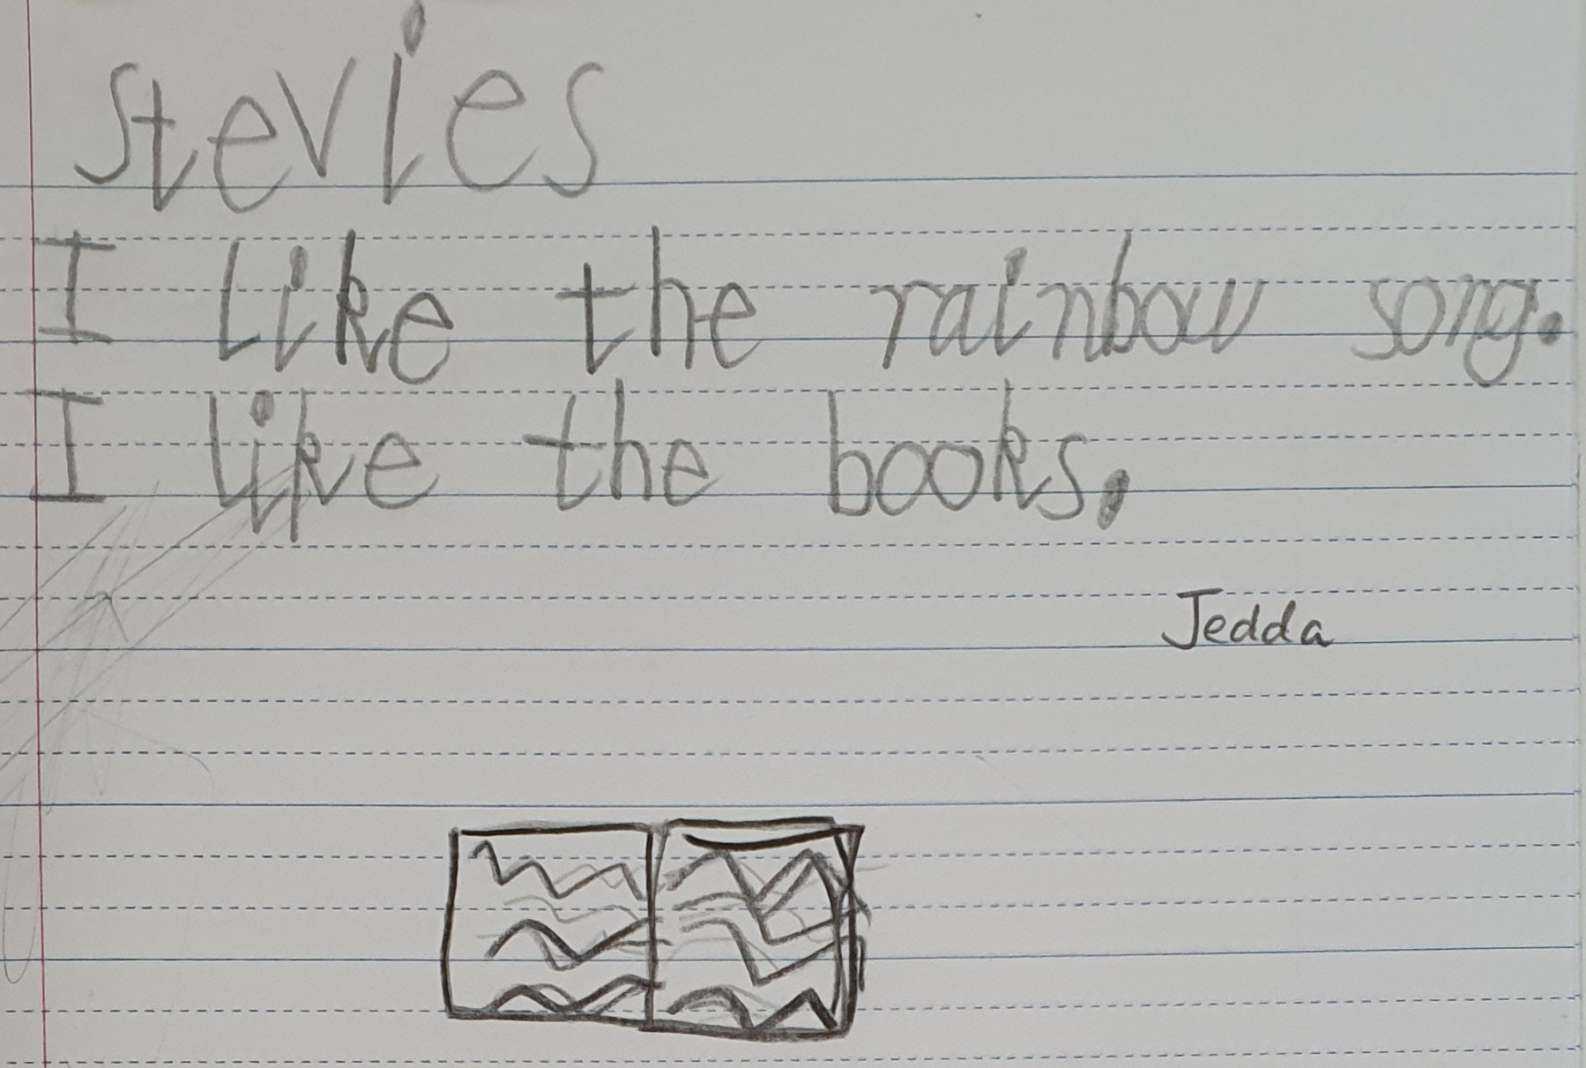 stevies
I like the rainbow song.
I like the books.
Jedda